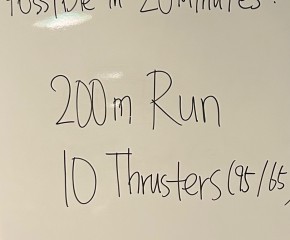 Possible in 20 minutes:
200m Run
10 Thrusters (95/65)